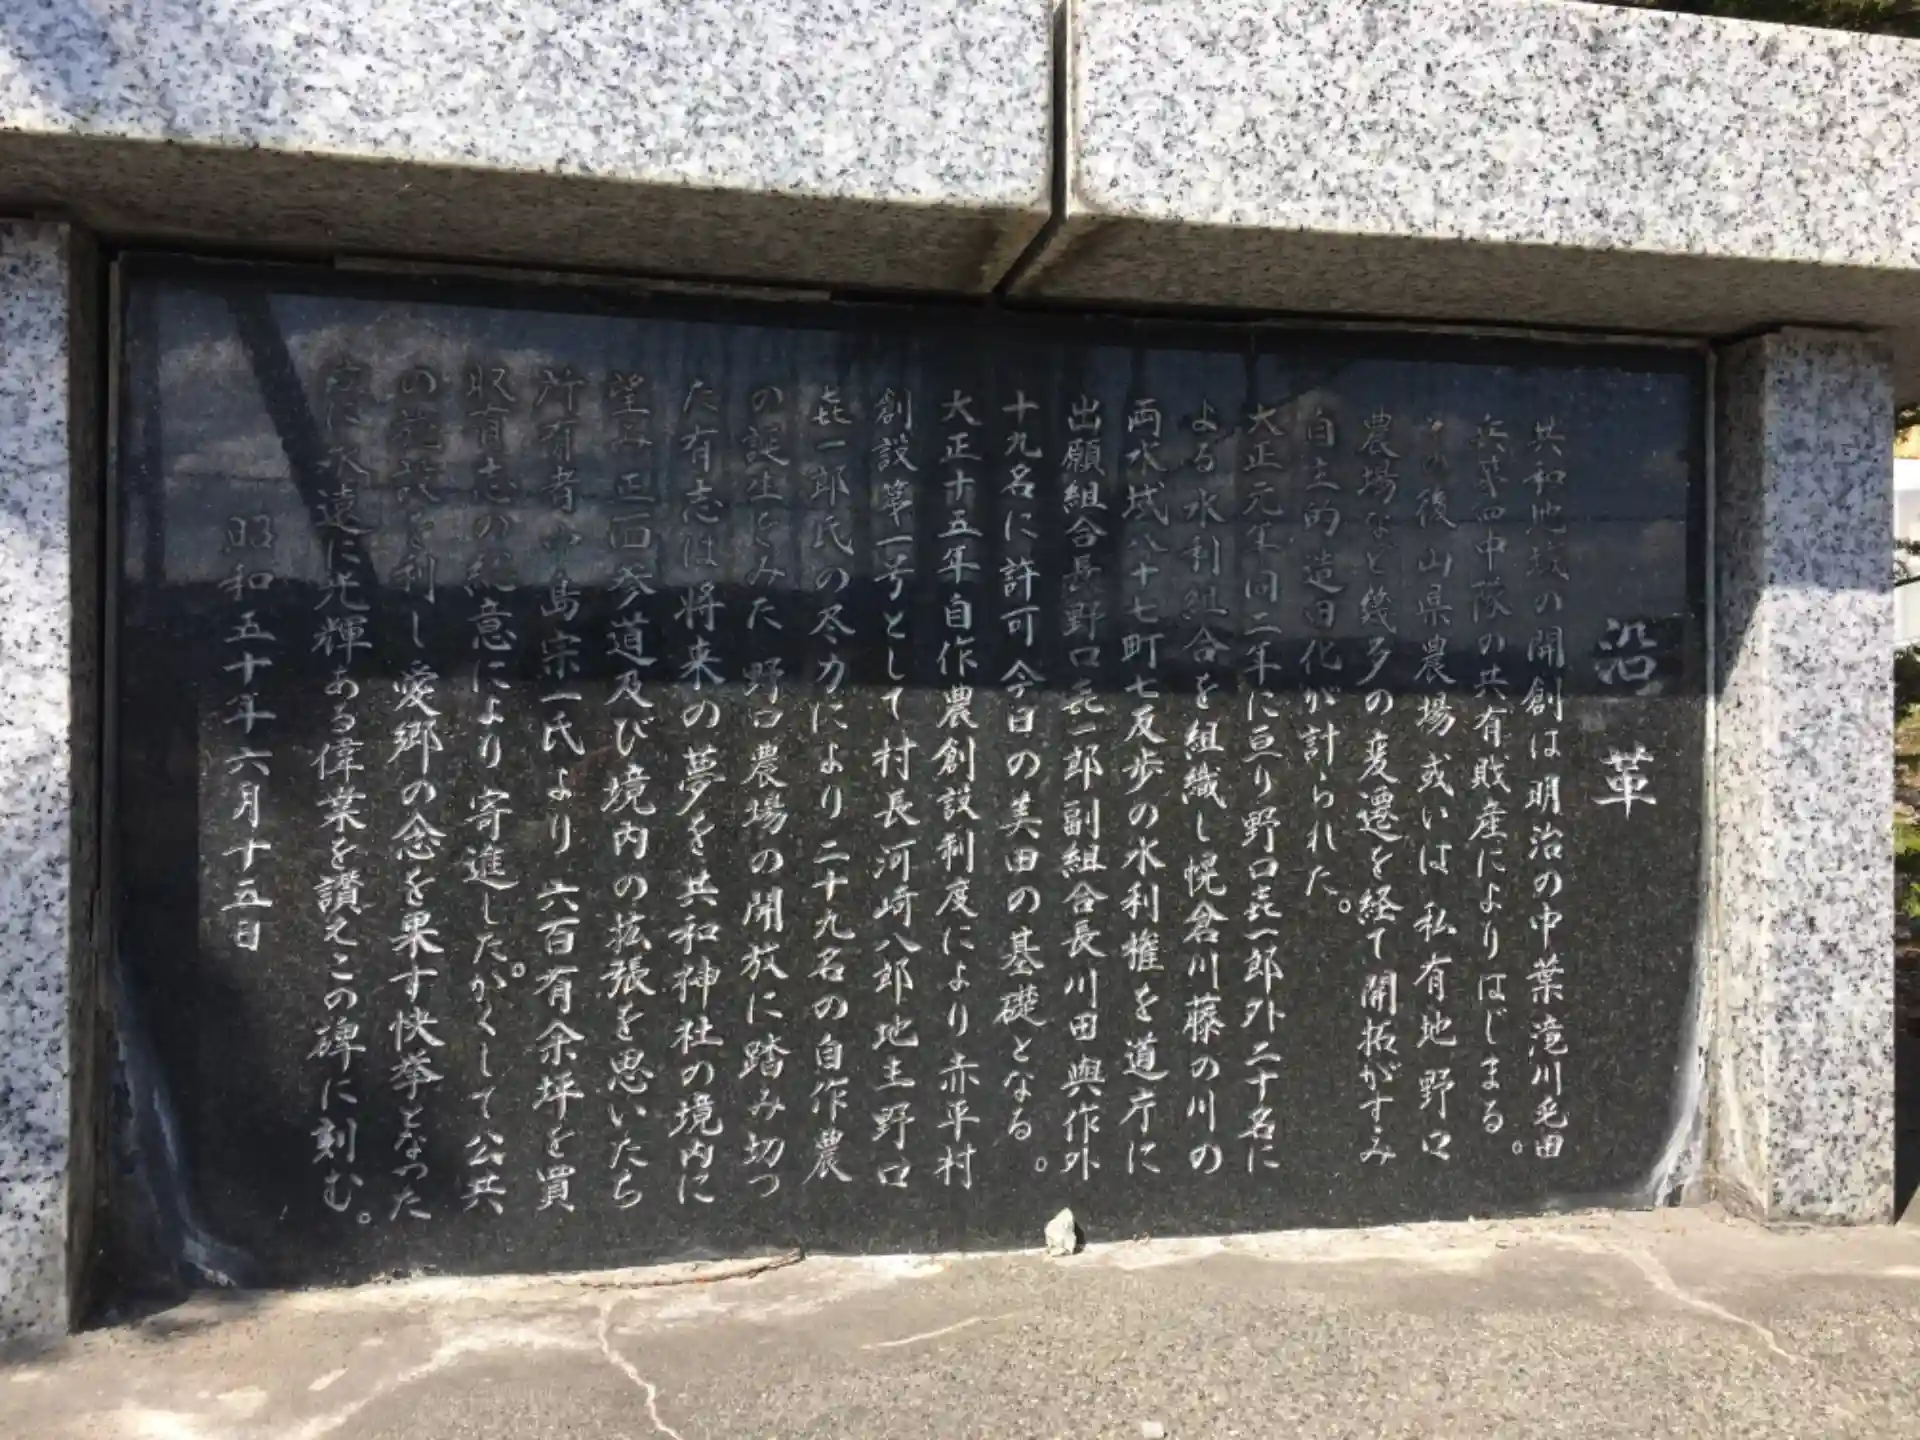 沿革
共和地域の開創は明治の中葉滝川屯田
兵第四中隊の共有財産によりはじまる。
その後山県農場或いは私有地野口
農場など幾多の変遷を経て開拓がすみ
自主的造田化が計られた。
大正元年同二年に亘り野口㐂一郎外二十名に
よる水利組合を組織し幌倉川藤の川の
両水域八十七町七反歩の水利権を道庁に
出願組合長野口㐂一郎副組合長川田與作外
十九名に許可今日の美田の基礎となる。
大正十五年自作農創設制度により赤平村
創設第一号として村長河崎八郎地主野口
㐂一郎氏の尽力により二十九名の自作農
の誕生をみた野口農場の開放に踏み切っ
た有志は将来の夢を共和神社の境内に
望み正面参道及び境内の拡張を思いたち
所有者中島宗一氏より六百有余坪を買
収有志の総意により寄進したかくして公共
の施設を利し愛郷の念を果す快挙となった
に永遠に光輝ある偉業を讃えこの碑に刻む。
昭和五十年六月十五日